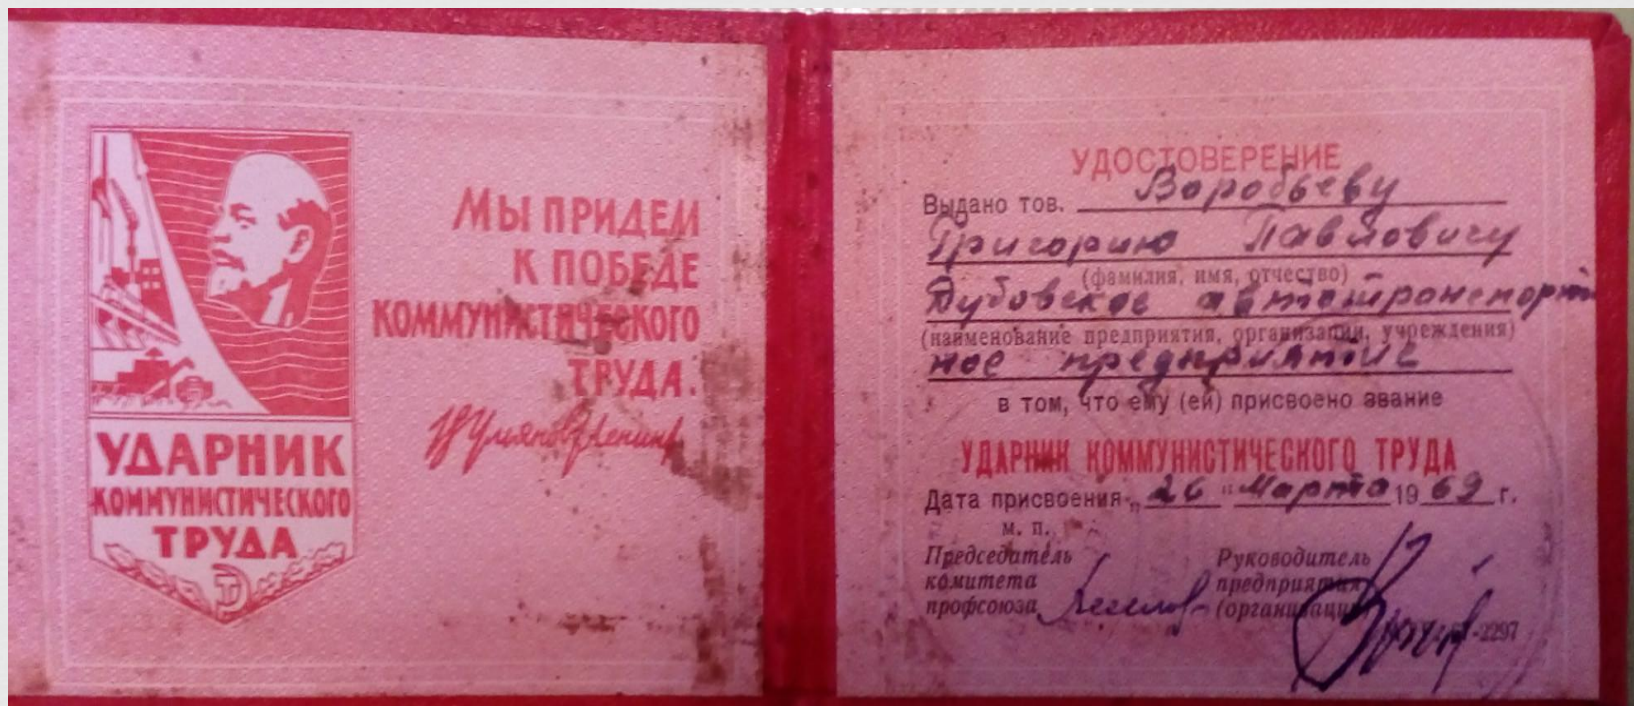 Мы придем
к победе
коммунистического
труда.
В Ульянов (Ленин)
УДАРНИК
КОММУНИСТИЧЕСКОГО
ТРУДА
УДОСТОВЕРЕНИЕ
Выдано тов. Воробьеву
Григорию Павловичу
(фамилия, имя, отчество)
Дубовское автотранспорт
(наименование предприятия, организации, учреждения)
ное предприятие
в том, что ему (ей) присвоено звание
УДАРНИК КОММУНИСТИЧЕСКОГО ТРУДА
Дата присвоения „26" Марта 1969 г.
м. п.
Председатель
комитета
профсоюза
Руководитель
предприятия
(организации)
-2297